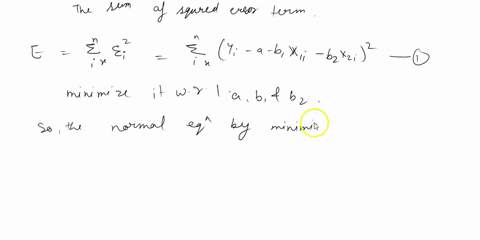 The sum of squred error term.
E = Σ_{i=x}^{n} ε_i^2 = Σ_{i=x}^{n} (Y_i - a - b_1 X_{1i} - b_2 X_{2i})^2 — ①
minimize it w.r.t a, b_1 & b_2.
So, the normal eq^n by minimiz